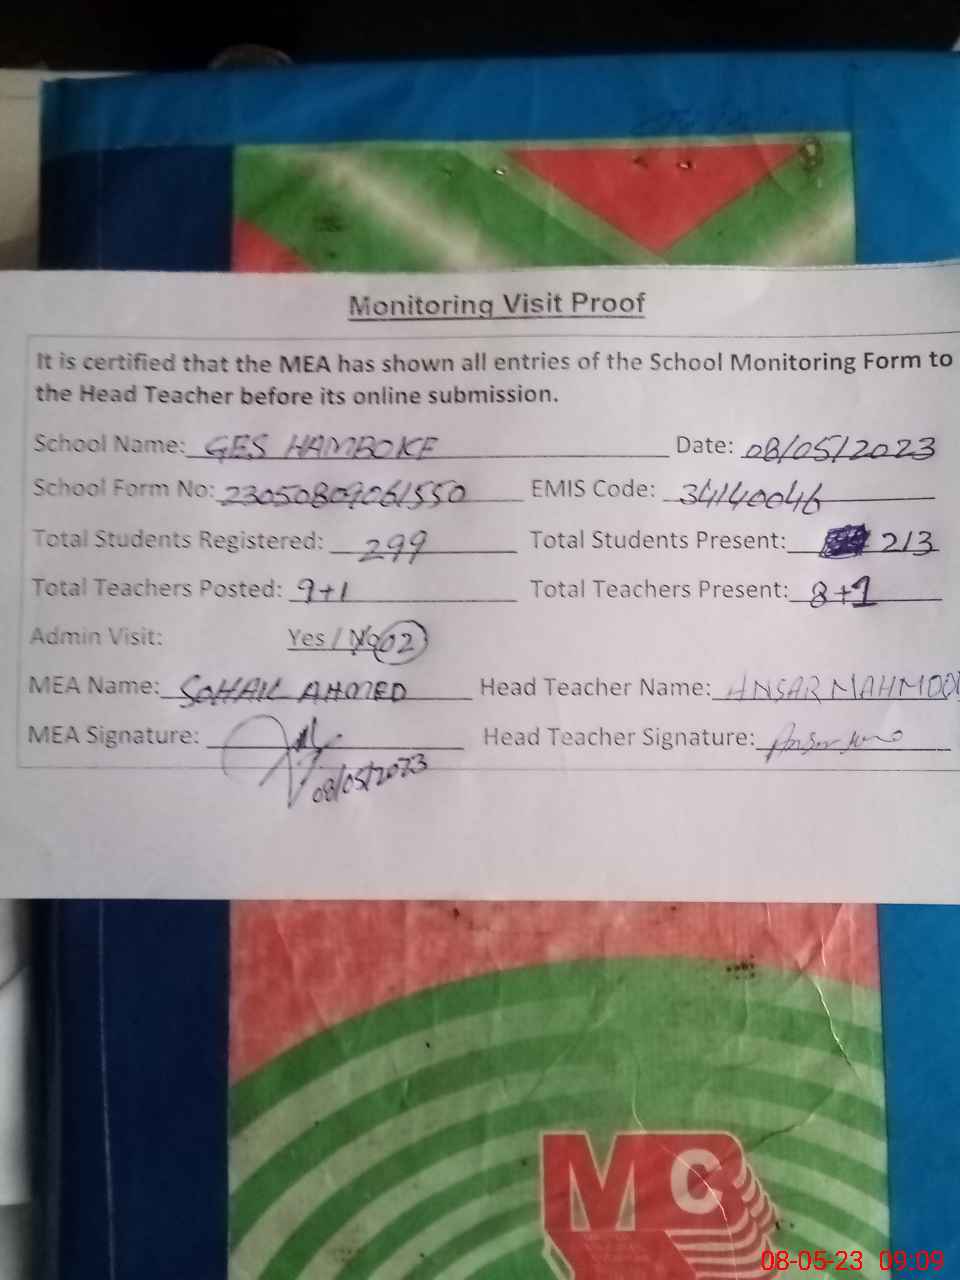 Monitoring Visit Proof
It is certified that the MEA has shown all entries of the School Monitoring Form to
the Head Teacher before its online submission.
School Name: GES HAMBOKE Date: 08/05/2023
School Form No: 23050809061550 EMIS Code: 34140046
Total Students Registered: 299 Total Students Present: 213
Total Teachers Posted: 9+1 Total Teachers Present: 8+1
Admin Visit: Yes / No 02
MEA Name: SOHAIL AHMED Head Teacher Name: ANSAR MAHMOO
MEA Signature: Head Teacher Signature:
08/05/2023
MG
08-05-23 09:09